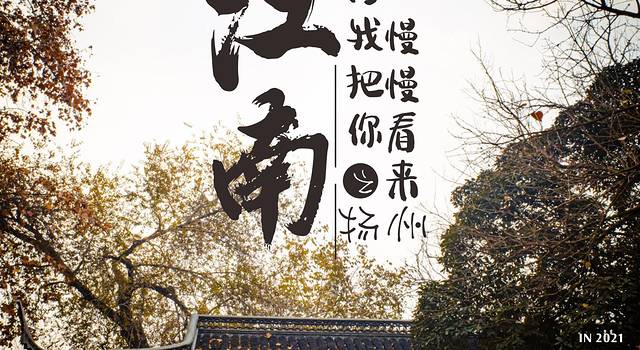 江南
慢慢看来州
我把你
扬
IN 2021